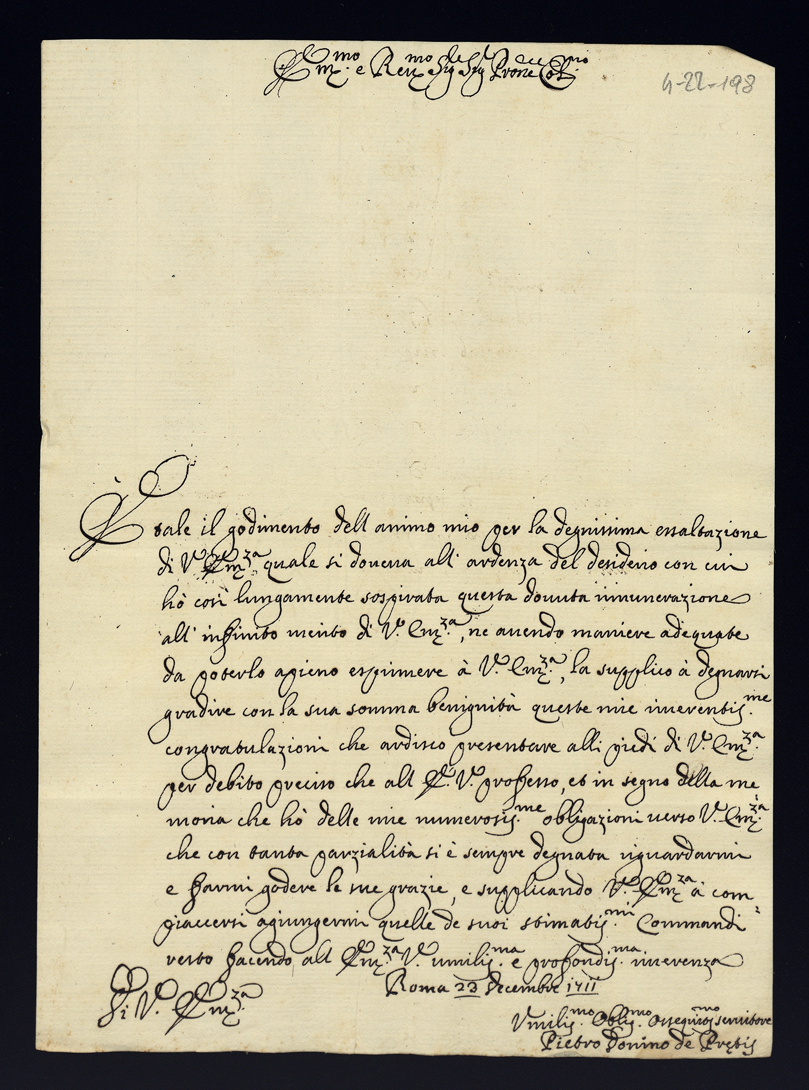 Em.mo e Rev.mo Sig.re Sig.re Prone Col.mo
4-22-193
È tale il godimento dell animo mio per la degnissima essaltazione
di V. Em.za quale si doueua all' ardenza del desiderio con cui
hò così lungamente sospirata questa douuta rimunerazione
all' infinito merito di V. Em.za, ne auendo maniere adequate
da poterlo apieno esprimere à V. Em.za, la supplico à degnarsi
gradire con la sua somma benignità queste mie riuerentis.me
congratulazioni che ardisco presentare alli piedi di V. Em.za
per debito preciso che all E. V. professo, et in segno della me
moria che hò delle mie numerosis.me obligazioni uerso V. Em.za
che con tanta parzialità si è sempre degnata riguardarmi
e farmi godere le sue grazie, e supplicando V. Em.za à com
piaccersi agiungermi quelle de suoi stimatis.mi Commandi
resto facendo all Em.za V. umilis.ma e profondis.ma riuerenza
Roma 23 Decembre 1711
Di V. Em.za
Vmilis.mo Oblig.mo Ossequios.mo seruitore
Pietro Donino de Pretis